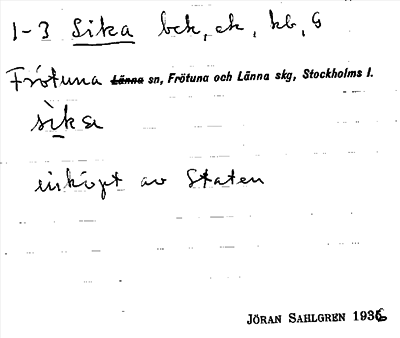 1-3 Sika bck, ck, kb, G
Frötuna Länna sn, Frötuna och Länna skg, Stockholms l.
sìka
inköpt av Staten
JÖRAN SAHLGREN 1936